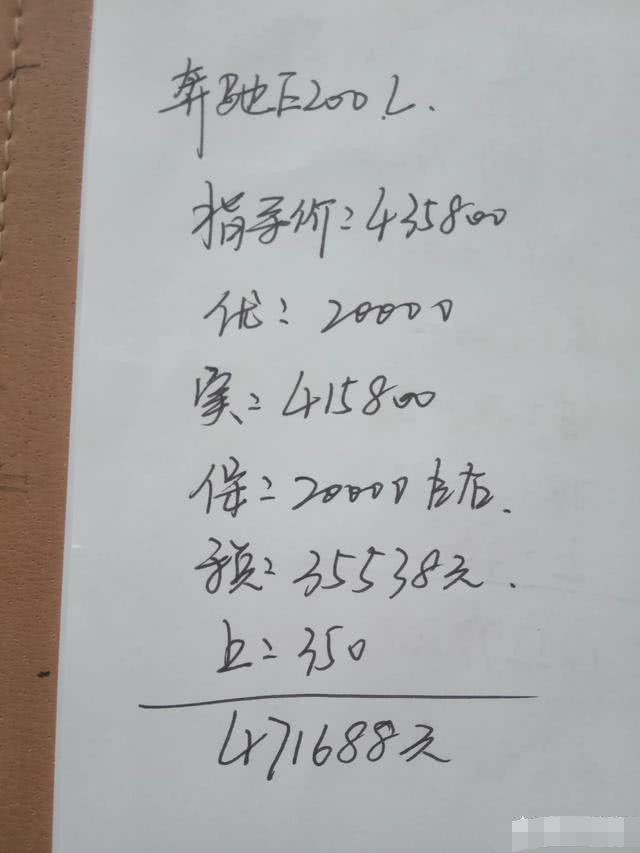 奔驰E200L.
指导价:435800
优:20000
实:415800
保:20000左右.
预:35538元.
上:350
471688元